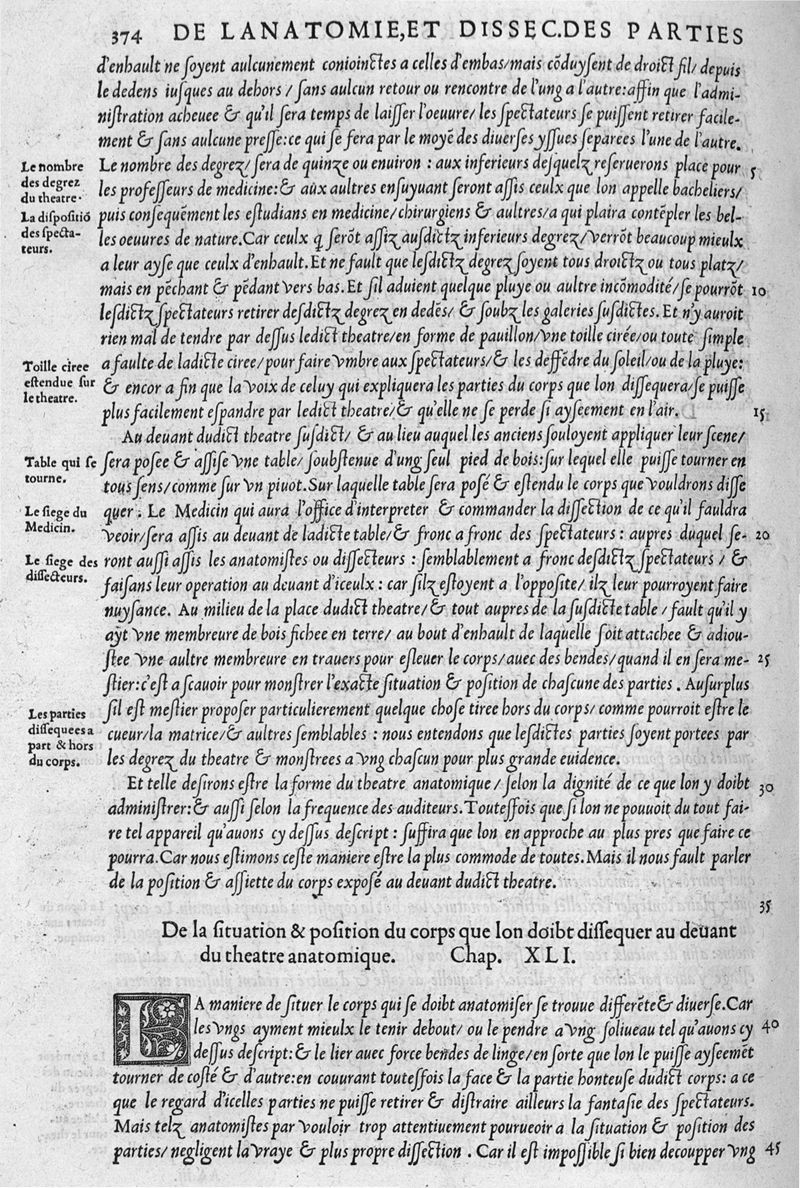 374 DE LANATOMIE, ET DISSEC. DES PARTIES
d'enhault ne soyent aulcunement conioinctes a celles d'embas/mais cõduysent de droict fil/depuis
le dedens iusques au dehors / sans aulcun retour ou rencontre de l'ung a l'autre: affin que l'admi-
nistration acheuee & qu'il sera temps de laisser l'oeuure/ les spectateurs se puissent retirer facile-
ment & sans aulcune presse: ce qui se fera par le moyẽ des diuerses yssues separees l'une de l'autre.
Le nombre des degrez du theatre.
Le nombre des degrez/ sera de quinze ou enuiron : aux inferieurs desquelz reseruerons place pour 5
les professeurs de medicine: & aux aultres ensuyuant seront assis ceulx que lon appelle bacheliers/
La dispositiõ des specta-teurs.
puis consequẽment les estudians en medicine/chirurgiens & aultres/a qui plaira contẽpler les bel-
les oeuures de nature. Car ceulx q serõt assiz ausdictz inferieurs degrez/ verrõt beaucoup mieulx
a leur ayse que ceulx d'enhault. Et ne fault que lesdictz degrez soyent tous droictz ou tous platz/
mais en pẽchant & pẽdant vers bas. Et sil aduient quelque pluye ou aultre incõmodité/se pourrõt 10
lesdictz spectateurs retirer desdictz degrez en dedẽs/ & soubz les galeries susdictes. Et n'y auroit
rien mal de tendre par dessus ledict theatre/en forme de pauillon/vne toille cirée/ou toute simple
Toille ciree estendue sur le theatre.
a faulte de ladicte ciree/pour faire vmbre aux spectateurs/ & les deffẽdre du soleil/ou de la pluye:
& encor a fin que la voix de celuy qui expliquera les parties du corps que lon dissequera/se puisse
plus facilement espandre par ledict theatre/& qu'elle ne se perde si ayseement en l'air. 15
Au deuant dudict theatre susdict/ & au lieu auquel les anciens souloyent appliquer leur scene/
Table qui se tourne.
sera posee & assise vne table/ soubstenue d'ung seul pied de bois: sur lequel elle puisse tourner en
tous sens/comme sur vn piuot. Sur laquelle table sera posé & estendu le corps que vouldrons disse
Le siege du Medicin.
quer . Le Medicin qui aura l'office d'interpreter & commander la dissection de ce qu'il fauldra
veoir/sera assis au deuant de ladicte table/& fronc a fronc des spectateurs : aupres duquel se- 20
Le siege des dissecteurs.
ront aussi assis les anatomistes ou dissecteurs : semblablement a fronc desdictz spectateurs / &
faisans leur operation au deuant d'iceulx : car silz estoyent a l'opposite/ ilz leur pourroyent faire
nuysance. Au milieu de la place dudict theatre/& tout aupres de la susdicte table / fault qu'il y
ayt vne membreure de bois fichee en terre/ au bout d'enhault de laquelle soit attachee & adiou-
stee vne aultre membreure en trauers pour esleuer le corps/auec des bendes/quand il en sera me- 25
stier: c'est a scauoir pour monstrer l'exacte situation & position de chascune des parties . Au surplus
Les parties dissequees a part & hors du corps.
sil est mestier proposer particulierement quelque chose tiree hors du corps/ comme pourroit estre le
cueur/la matrice/& aultres semblables : nous entendons que lesdictes parties soyent portees par
les degrez du theatre & monstrees a vng chascun pour plus grande euidence.
Et telle desirons estre la forme du theatre anatomique/ selon la dignité de ce que lon y doibt 30
administrer: & aussi selon la frequence des auditeurs. Toutessfois que si lon ne pouuoit du tout fai-
re tel appareil qu'auons cy dessus descript : suffira que lon en approche au plus pres que faire ce
pourra. Car nous estimons ceste maniere estre la plus commode de toutes. Mais il nous fault parler
de la position & assiette du corps exposé au deuant dudict theatre.
35
De la situation & position du corps que lon doibt dissequer au deuant
du theatre anatomique. Chap. XLI.
LA maniere de situer le corps qui se doibt anatomiser se trouue differẽte & diuerse. Car
les vngs ayment mieulx le tenir debout/ ou le pendre a vng soliueau tel qu'auons cy 40
dessus descript: & le lier auec force bendes de linge/en sorte que lon le puisse ayseemẽt
tourner de costé & d'autre: en couurant toutessfois la face & la partie honteuse dudict corps: a ce
que le regard d'icelles parties ne puisse retirer & distraire ailleurs la fantasie des spectateurs.
Mais telz anatomistes par vouloir trop attentiuement pourueoir a la situation & position des
parties/ negligent la vraye & plus propre dissection . Car il est impossible si bien decoupper vng 45